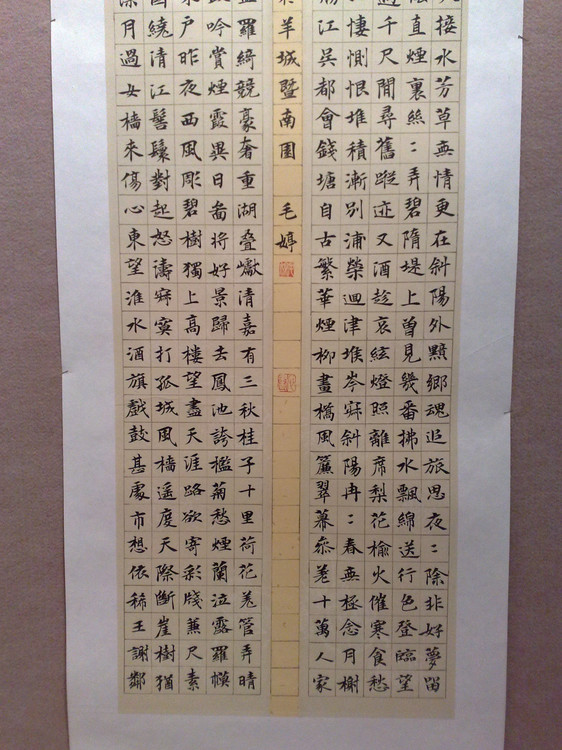 接水芳草無情更在斜陽外黯鄉魂追旅思夜〻除非好夢留
直煙裏絲〻弄碧隋堤上曾見幾番拂水飄綿送行色登臨望
過千尺閒尋舊蹤迹又酒趁哀絃燈照離席梨花榆火催寒食愁
悽惻恨堆積漸別浦縈迴津堠岑寂斜陽冉〻春無極念月榭
江吳都會錢塘自古繁華煙柳畫橋風簾翠幕參差十萬人家
羊城暨南園 毛婷
羅綺競豪奢重湖疊巘清嘉有三秋桂子十里荷花羌管弄晴
吟賞煙霞異日啚將好景歸去鳳池誇檻菊愁煙蘭泣露羅幙
戶昨夜西風彫碧樹獨上高樓望盡天涯路欲寄彩牋兼尺素
繞清江髻鬟對起怒濤寂寞打孤城風檣遙度天際斷崖樹猶
深月過女檣來傷心東望淮水酒旗戲鼓甚處市想依稀王謝鄰